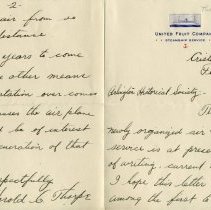 2
air from us
distance
years to come
other means
tation over
uses the air plane
d be of interest
eneration of that
spectfully
arold C. Thorpe
UNITED FRUIT COMPANY
STEAMSHIP SERVICE
Crist
Arlington Historical Society:
Th
newly organized air
service is at pres
of writing, current
I hope this letter
among the first to